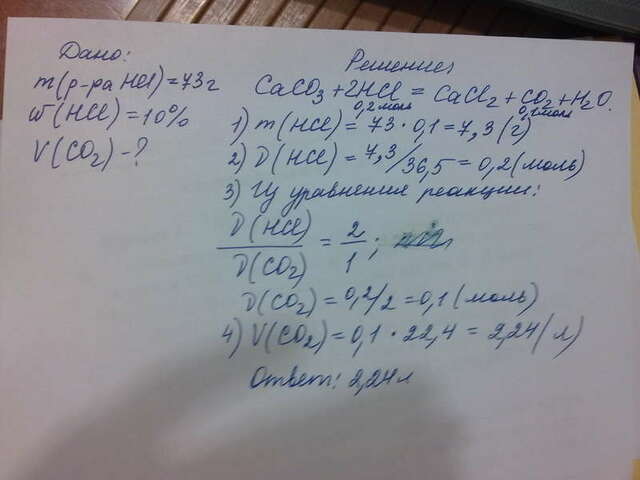 Дано:
m(р-ра HCl) = 73г
ω(HCl) = 10%
V(CO₂) - ?
Решение:
CaCO₃ + 2HCl = CaCl₂ + CO₂ + H₂O.
0,2моль 0,1моль
1) m(HCl) = 73 · 0,1 = 7,3 (г)
2) D(HCl) = 7,3/36,5 = 0,2 (моль)
3) Из уравнения реакции:
D(HCl)/D(CO₂) = 2/1;
D(CO₂) = 0,2/2 = 0,1 (моль)
4) V(CO₂) = 0,1 · 22,4 = 2,24 (л)
Ответ: 2,24л